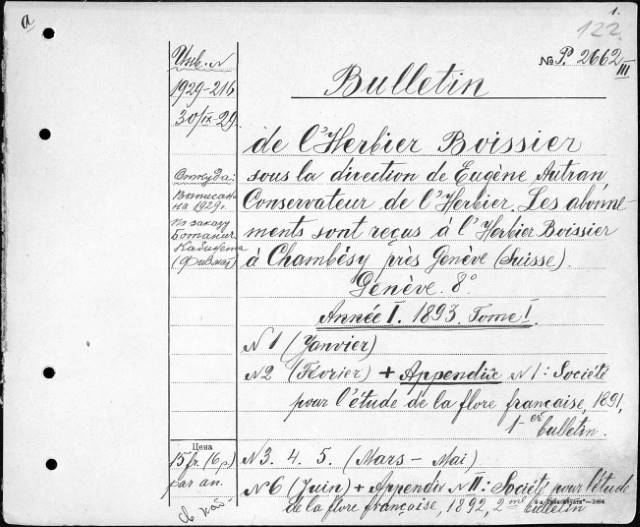 a
1.
122
Инв. N
№ P. 2662
III
1929-216
30/IX-29.
Bulletin
de l'Herbier Boissier
sous la direction de Eugène Autran
Conservateur de l'Herbier. Les abonne-
ments sont reçus à l'Herbier Boissier
à Chambésy près Genève (Suisse).
Genève. 8°
Откуда:
Выписан
на 1929 г.
по заказу
Ботанич.
Кабинета
(Физмат)
Année I. 1893. Tome I.
N 1 (Janvier)
N 2 (Février) + Appendix N 1: Société
pour l'étude de la flore française, 1891,
1-er bulletin.
Цена
15 fr. (6 р.)
par an.
N 3. 4. 5. (Mars - Mai)
N 6 (Juin) + Appendix N II: Société pour l'étude
de la flore française, 1892, 2me bulletin